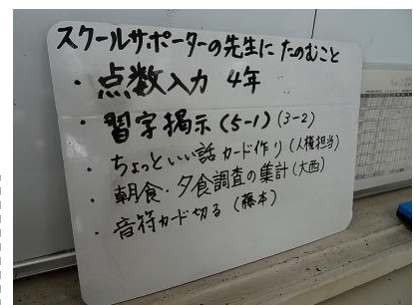 スクールサポーターの先生に たのむこと
・点数入力 4年
・習字掲示(5-1)(3-2)
・ちょっといい話 カード作り(人権担当)
・朝食・夕食調査の集計(大西)
・音符カード切る(藤本)